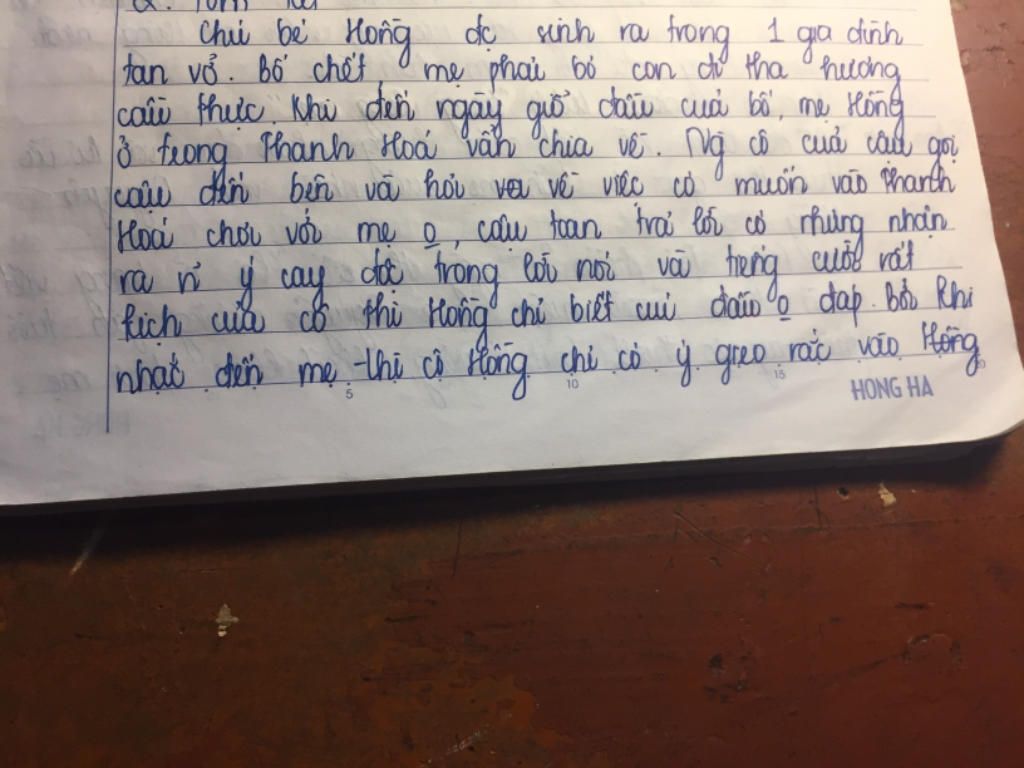 2. Tóm tắt
Chú bé Hồng đc sinh ra trong 1 gia đình
tan vỡ. Bố chết, mẹ phải bỏ con đi tha hương
cầu thực. Khi đến ngày giỗ đầu của bố, mẹ Hồng
ở trong Thanh Hoá vẫn chưa về. Ng cô của cậu gọi
cậu đến bên và hỏi về việc có muốn vào Thanh
Hoá chơi với mẹ o, cậu toan trả lời có nhưng nhận
ra n~ ý cay độc trong lời nói và trong cười rất
kịch của cô thì Hồng chỉ biết cúi đầu o đáp. Bởi khi
nhắc đến mẹ thì cô Hồng chỉ có ý gieo rắc vào Hồng
5 10 15
HONG HA